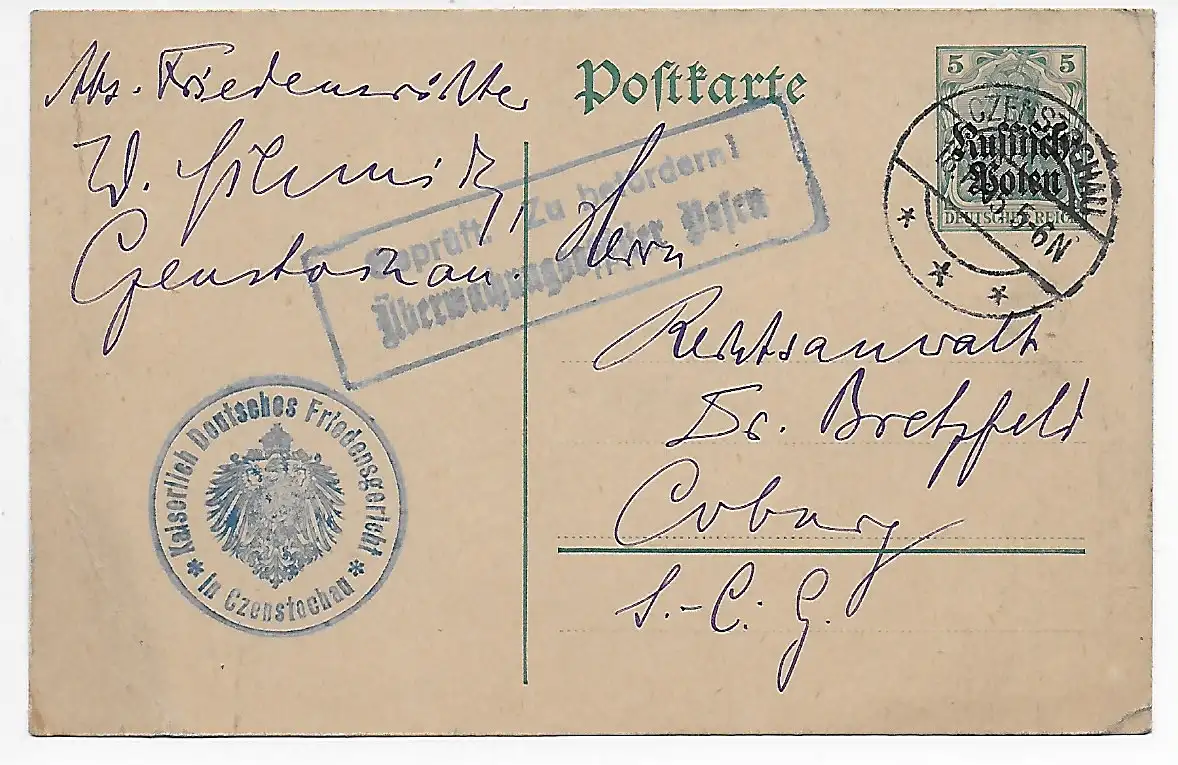 Abs. Friedensrichter
W. Schmitz,
Czenstochau.
Postkarte
5 5
Russisch-
Polen
DEUTSCHES REICH
CZENSTOCHAU
5-6N
Geprüft. Zu befördern!
Überwachungsoffizier Posen
Herrn
Rechtsanwalt
Dr. Bretzfeld
Coburg
S.-C. G.
Kaiserlich Deutsches Friedensgericht
* in Czenstochau *